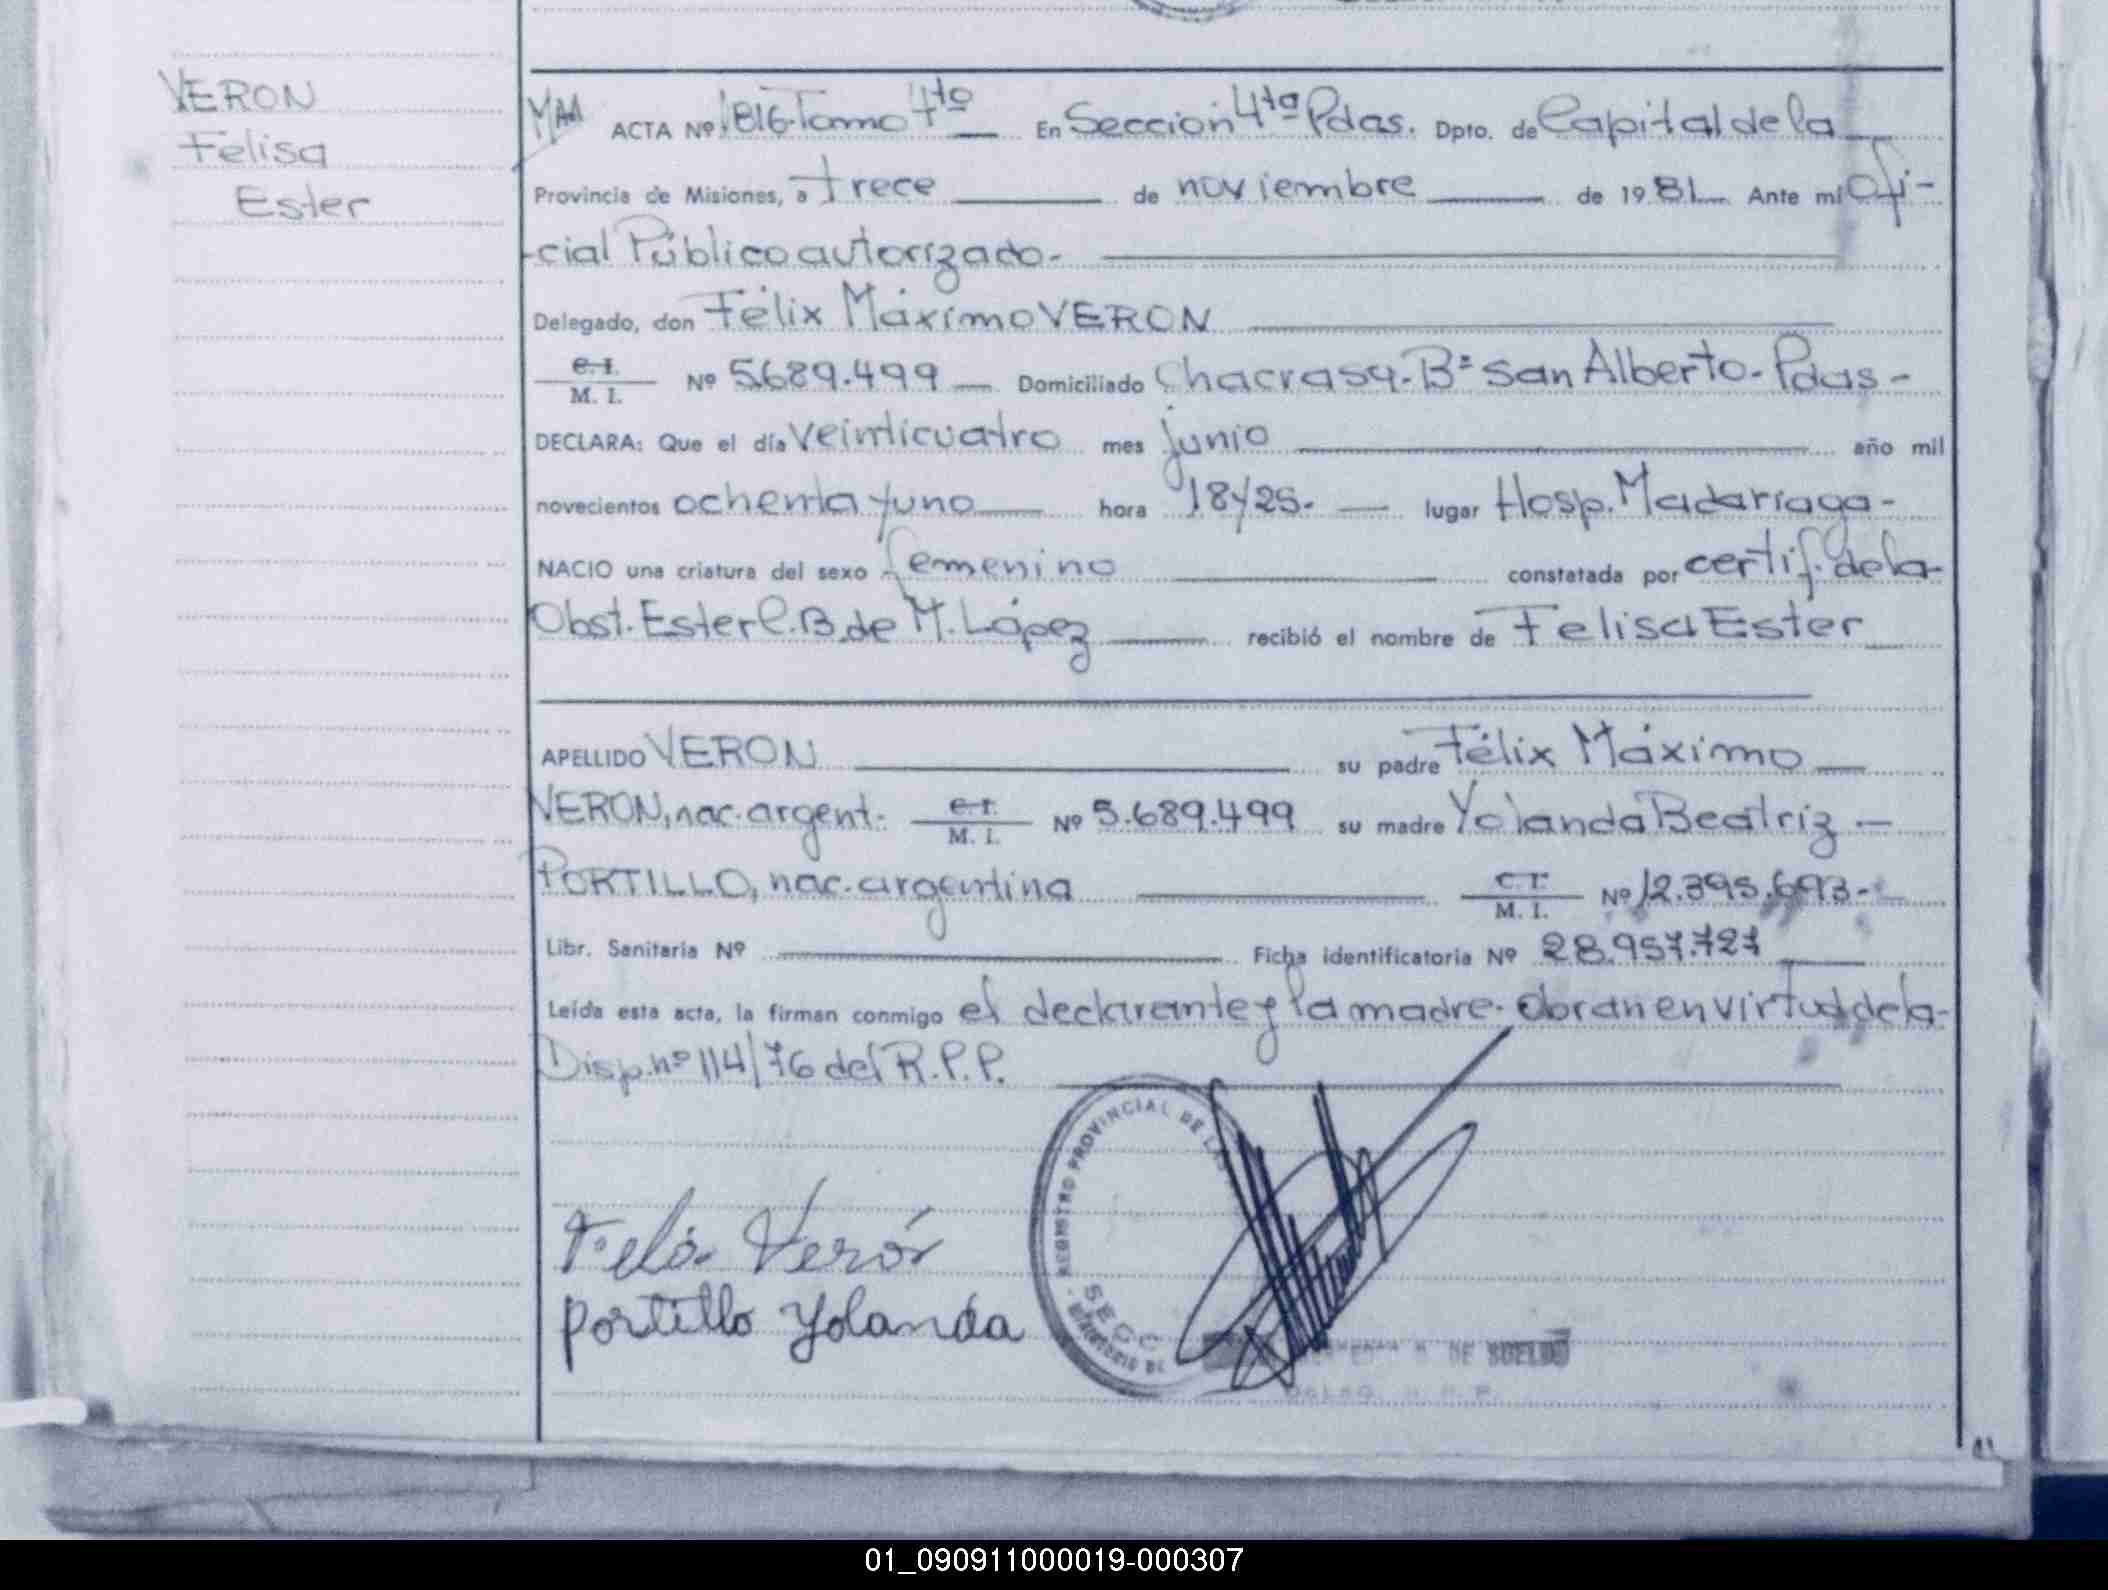 VERON
Felisa
Ester
ACTA Nº 1816-Tomo 4to En Sección 4ta Pdas. Dpto. de Capital de la
Provincia de Misiones, a trece de noviembre de 1981 Ante mí Ofi-
-cial Público autorizado-
Delegado, don Félix Máximo VERON
C.I. / M. I. Nº 5.689.499 Domiciliado Chacra 59-Bº San Alberto-Pdas-
DECLARA: Que el día veinticuatro mes junio año mil
novecientos ochenta y uno hora 18y25.- lugar Hosp. Madariaga-
NACIO una criatura del sexo femenino constatada por certif. de la
Obst. Ester C.B. de M. López recibió el nombre de Felisa Ester
APELLIDO VERON su padre Félix Máximo
VERON, nac. argent. C.I. / M. I. Nº 5.689.499 su madre Yolanda Beatriz -
PORTILLO, nac. argentina C.I. / M. I. Nº 12.395.693.-
Libr. Sanitaria Nº Ficha identificatoria Nº 28.957.727
Leída esta acta, la firman conmigo el declarante y la madre. Obran en virtud de la
Disp. nº 114/76 del R.P.P.
REGISTRO PROVINCIAL DE LAS
SECC
Verón
Portillo Yolanda
DE SUELDO
01_090911000019-000307